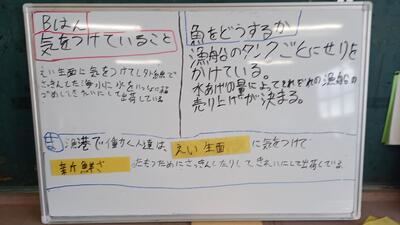 Bはん
気をつけていること
えい生面に気をつけて
さっきんした海水に氷をいっぱい
つめ きれいにして出荷している
魚をどうするか
漁船のタンクごとにせりを
かけている。
水あげの量によってそれぞれの漁船の
売り上げが決まる。
漁港で働く人達は、えい生面に気をつけて
新鮮さ たもつためにさっきんしたりして、きれいにして出荷している。